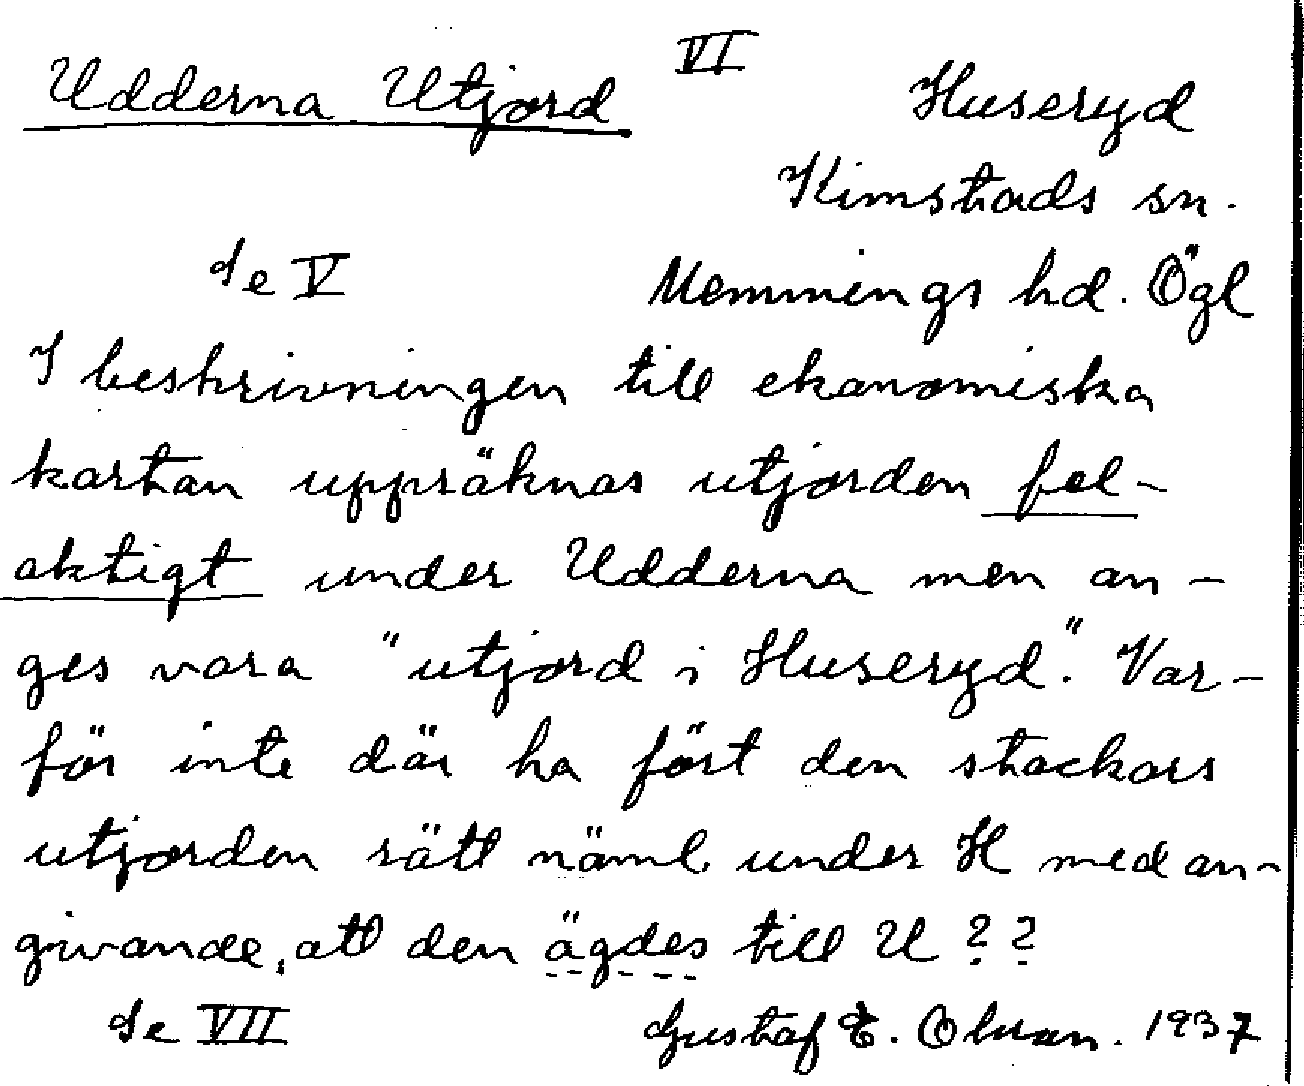 Udderna Utjord VI Huseryd
Kimstads sn.
Se V Memmings hd. Ögl
I beskrivningen till ekonomiska
kartan uppräknas utjorden fel-
aktigt under Udderna men an-
ges vara "utjord i Huseryd." Var-
för inte där ha fört den stackars
utjorden rätt näml. under H med an-
givande, att den ägdes till U ??
Se VII Gustaf E. 1937